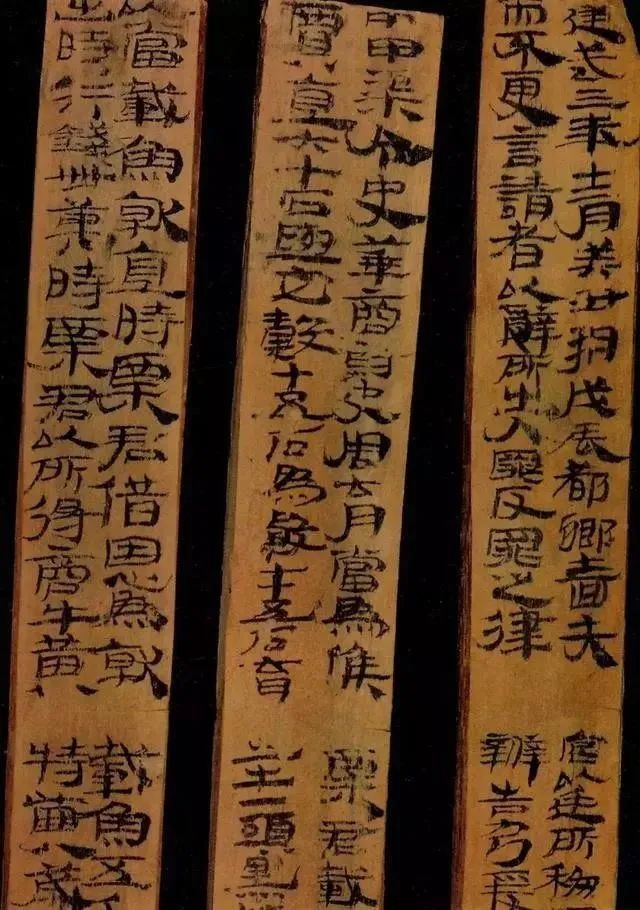 建武三年十二月癸丑朔戊辰都鄉嗇夫宮以廷所移
而不更言請者以辭所出入罪反罪之律辨告乃爰
中甲渠令史華商尉史周育當為候粟君載
賈直六十石與它穀十五石為穀七十五石育出牛一頭黑
以當載魚就直時粟君借恩為就載魚五
出時行錢卌萬時粟君以所得商牛黃特齒八歲